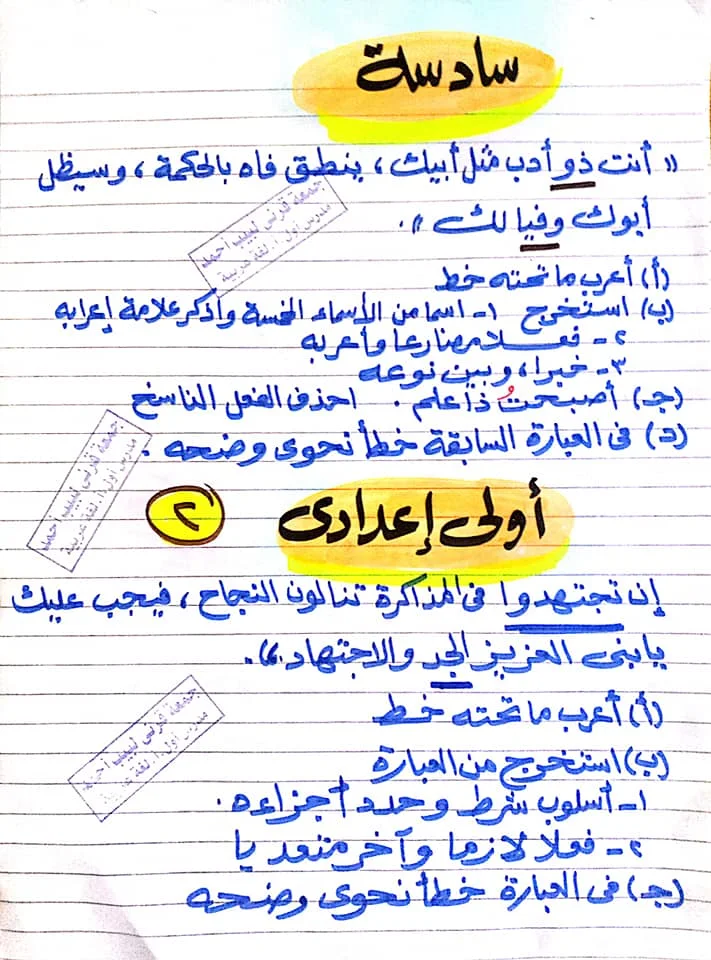 سادسة
« أنت ذو أدب مثل أبيك، ينطق فاه بالحكمة، وسيظل
أبوك وفيا لك».
(أ) أعرب ما تحته خط
(ب) استخرج ١- اسما من الأسماء الخمسة واذكر علامة إعرابه
٢- فعلا مضارعا وأعربه
٣- خبرا، وبين نوعه
(جـ) أصبحتُ ذا علم . احذف الفعل الناسخ
(د) فى العبارة السابقة خطأ نحوى وضحه .
أولى إعدادى ٢
إن تجتهدوا فى المذاكرة تنالون النجاح، فيجب عليك
يا بنى العزيز الجد والاجتهاد».
(أ) أعرب ما تحته خط
(ب) استخرج من العبارة
١- أسلوب شرط وحدد أجزاءه .
٢- فعلا لازما وآخر متعديا
(جـ) فى العبارة خطأ نحوى وضحه
جمعة قرنى لبيب احمد
مدرس اول أ. لغة عربية
جمعة قرنى لبيب احمد
مدرس اول أ. لغة عربية
جمعة قرنى لبيب احمد
مدرس اول أ. لغة عربية